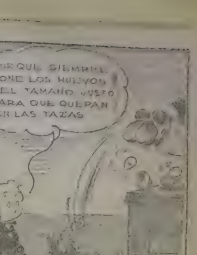 QUE SIEMPRE
PONE LOS HUEVOS
DEL TAMAÑO JUSTO
PARA QUE QUEPAN
EN LAS TAZAS